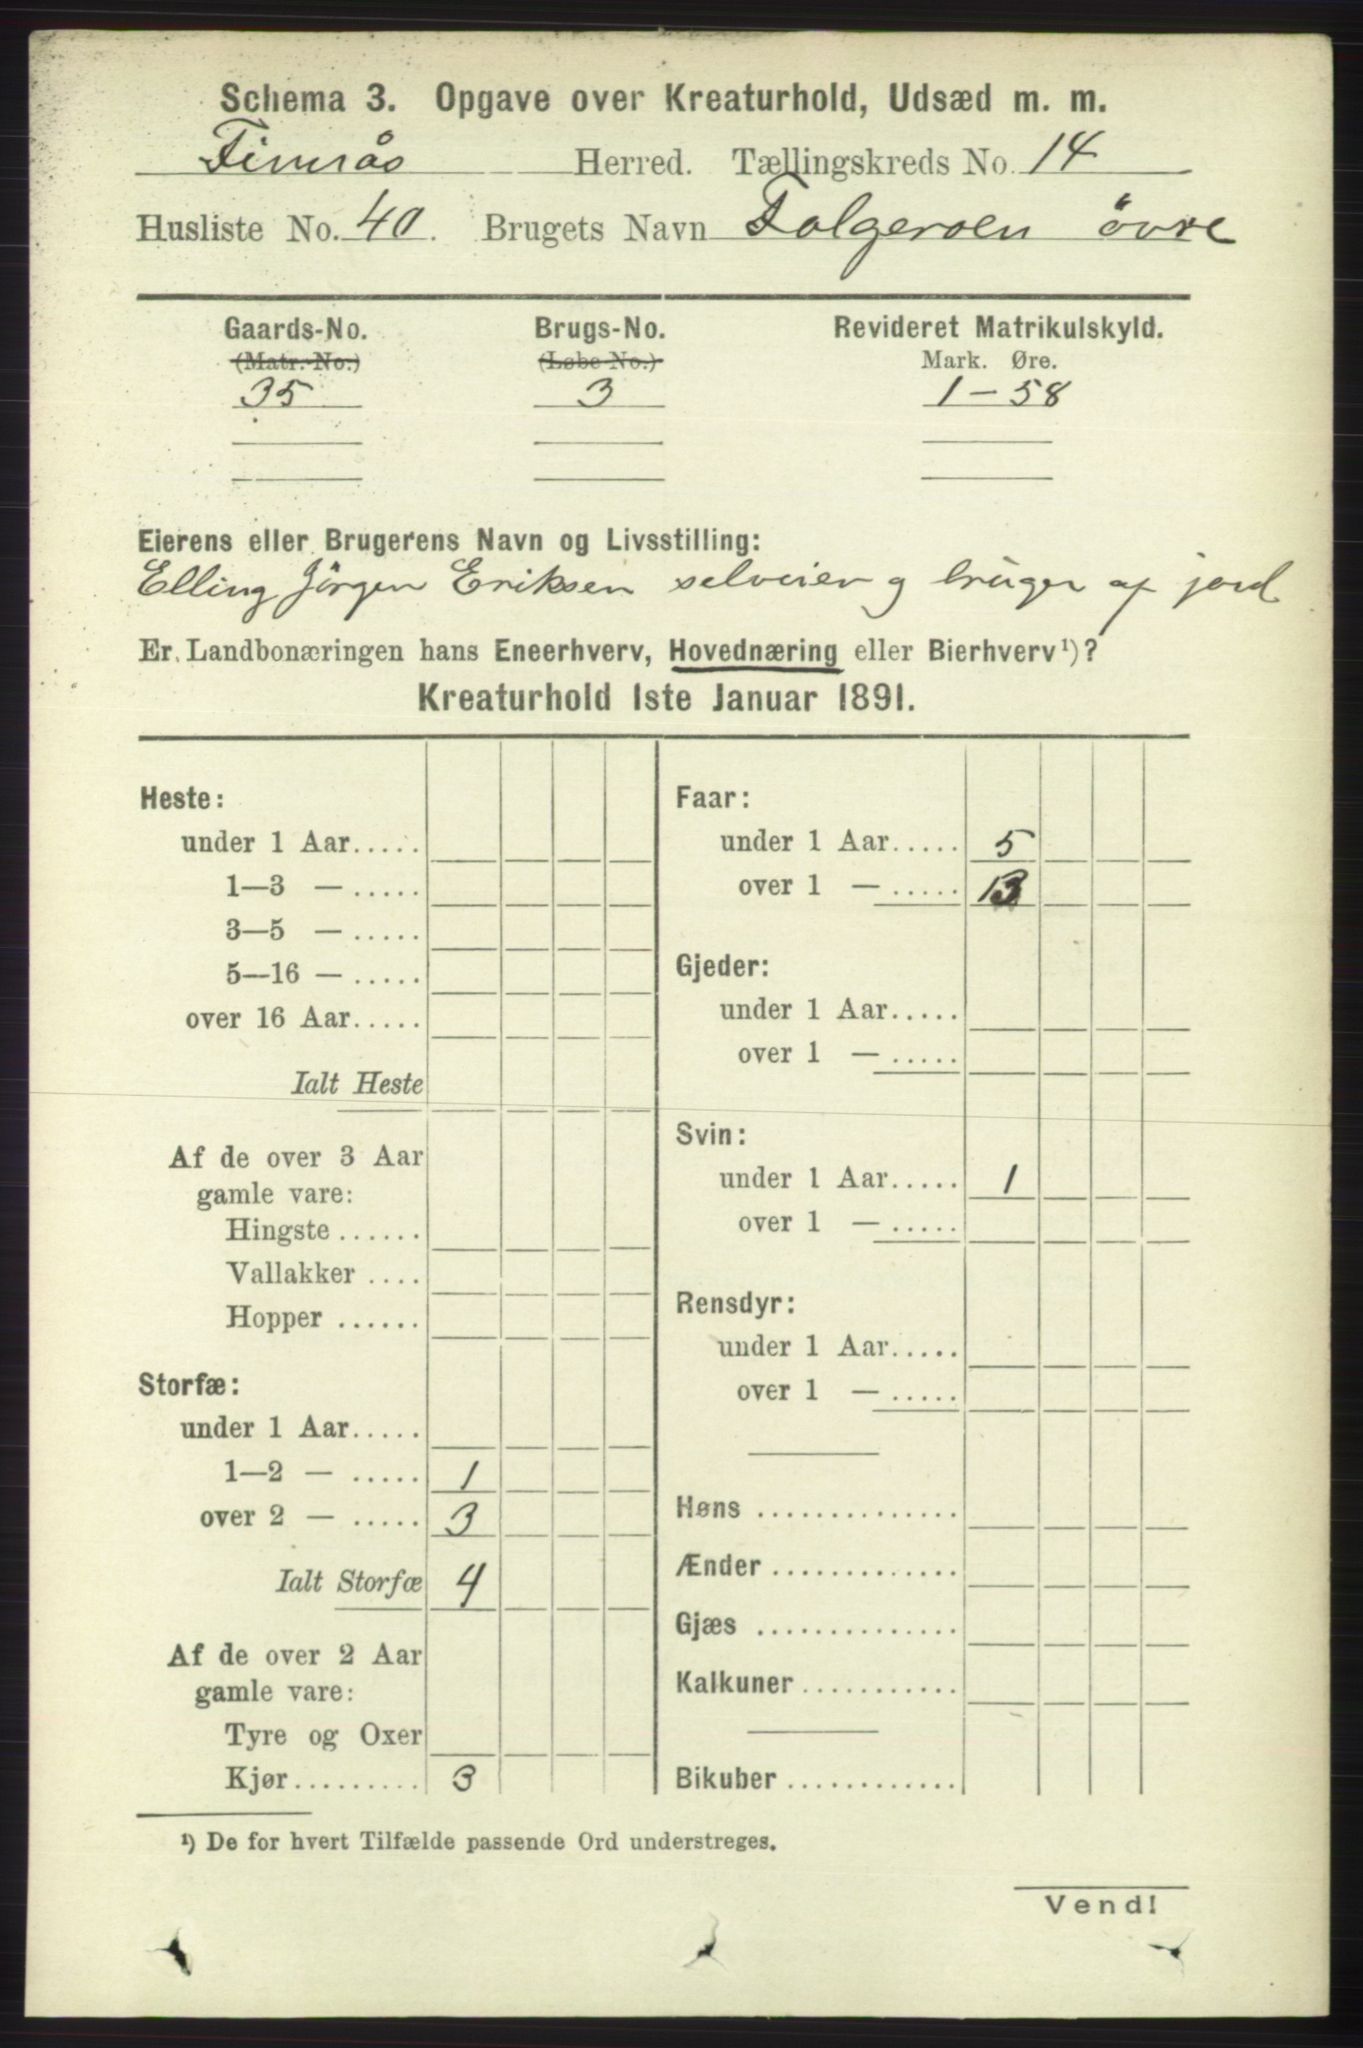 Schema 3. Opgave over Kreaturhold, Udsæd m. m.
Finnås Herred. Tællingskreds No. 14
Husliste No. 40. Brugets Navn Folgeroen övre
Gaards-No. Brugs-No. Revideret Matrikulskyld.
(Matr.-No.) (Løbe-No.) Mark. Øre.
35 3 1 - 58
Eierens eller Brugerens Navn og Livsstilling:
Elling Jörgen Eriksen selveier og bruger af jord
Er Landbonæringen hans Eneerhverv, Hovednæring eller Bierhverv¹)?
Kreaturhold 1ste Januar 1891.
Heste:
under 1 Aar.....
1—3 — .....
3—5 — .....
5—16 — .....
over 16 Aar.....
Ialt Heste
Af de over 3 Aar
gamle vare:
Hingste ......
Vallakker ....
Hopper ......
Storfæ:
under 1 Aar.....
1—2 — ..... 1
over 2 — ..... 3
Ialt Storfæ 4
Af de over 2 Aar
gamle vare:
Tyre og Oxer
Kjør......... 3
Faar:
under 1 Aar..... 5
over 1 — ..... 13
Gjeder:
under 1 Aar.....
over 1 — .....
Svin:
under 1 Aar..... 1
over 1 — .....
Rensdyr:
under 1 Aar.....
over 1 — .....
Høns ..............
Ænder .............
Gjæs ..............
Kalkuner...........
Bikuber ............
¹) De for hvert Tilfælde passende Ord understreges.
Vend!